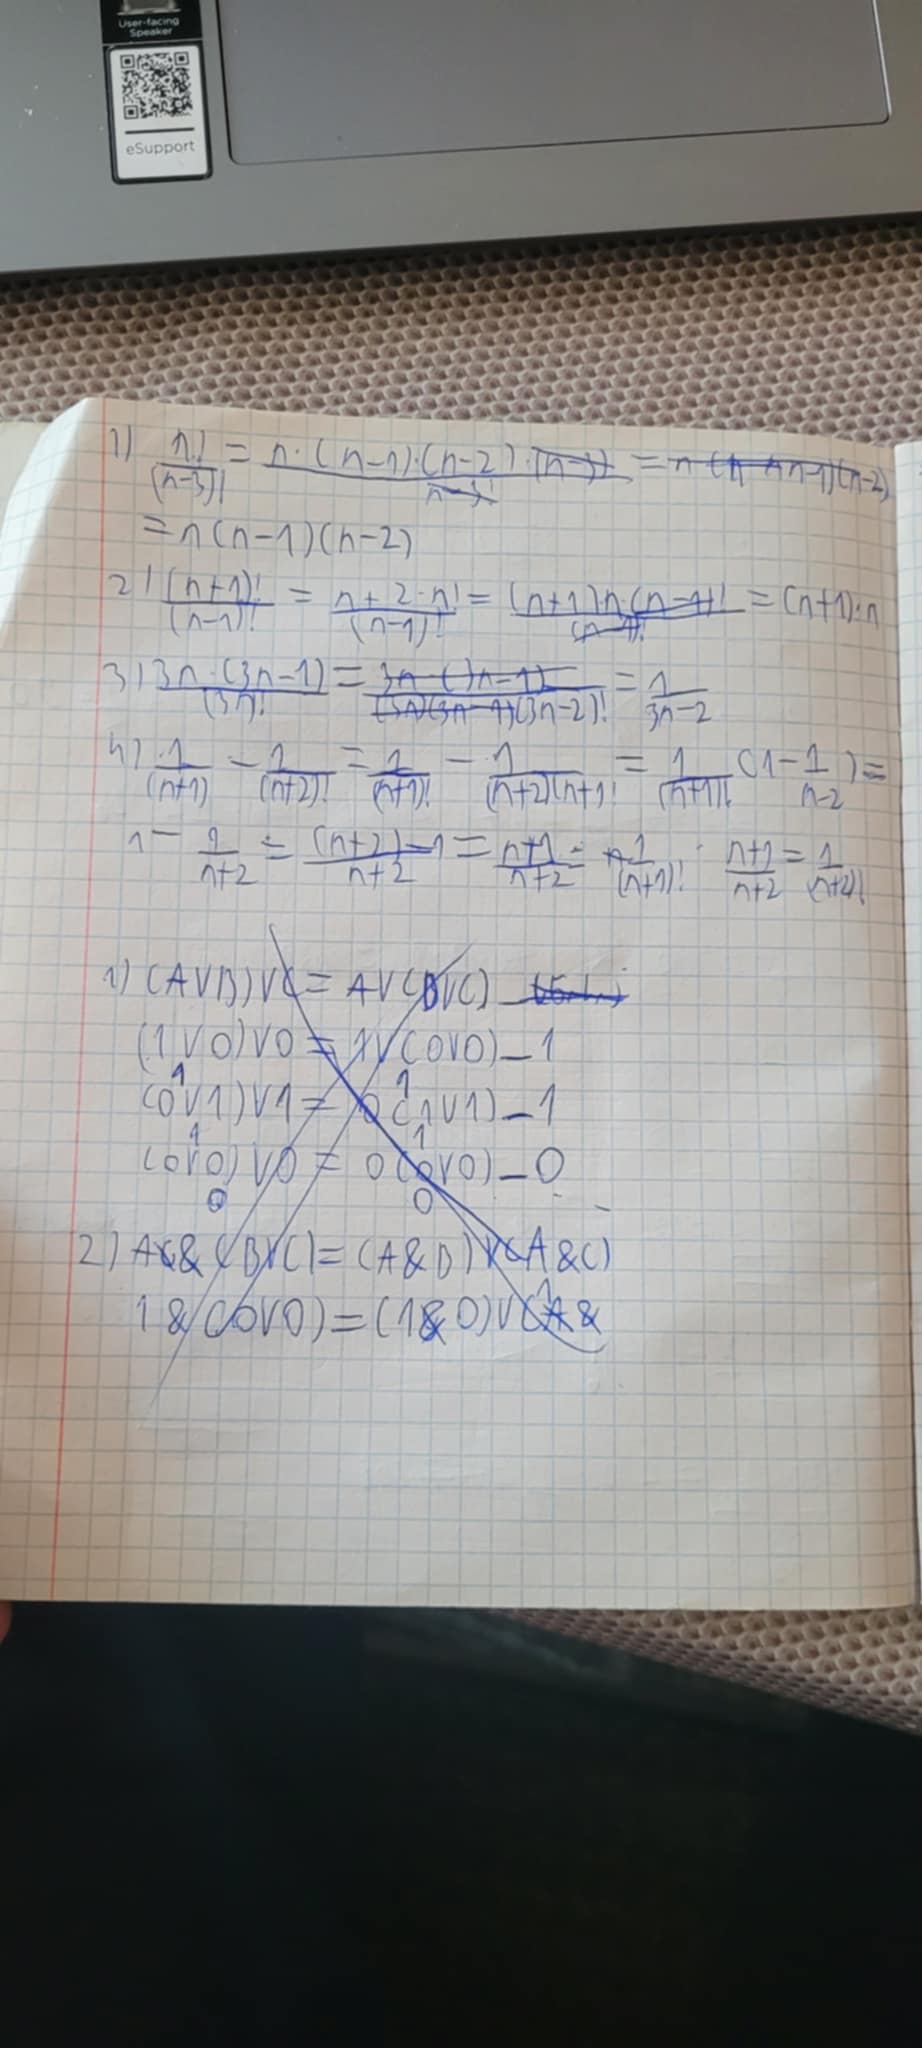 User-facing
Speaker
eSupport
1) n!/(n-3)! = n·(n-1)·(n-2)·(n-3)!/n-3 = n (n-1)(n-2)
= n(n-1)(n-2)
2) (n+1)!/(n-1)! = n+2·n!/(n-1)! = (n+1)n·(n-1)!/(n-1)! = (n+1)·n
3) 3n·(3n-1)/(3n)! = 3n·(3n-1)/(3n)(3n-1)(3n-2)! = 1/3n-2
4) 1/(n+1) - 1/(n+2)! = 1/(n+1)! - 1/(n+2)(n+1! = 1/(n+1)! (1 - 1/n-2) =
1 - 1/n+2 = (n+2)-1/n+2 = n+1/n+2 = 1/(n+1)! · n+1/n+2 = 1/(n+2)!
1) (A∨B)∨C = A∨(B∨C)
(1∨0)∨0 = 1∨(0∨0) - 1
1 1
(0∨1)∨1 = 0(1∨1) - 1
1 1
(0∨0)∨0 = 0(0∨0) - 0
0 0
2) A & (B∨C) = (A&B)∨(A&C)
1 & (0∨0) = (1&0)∨( &